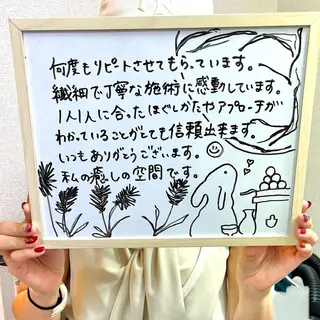 何度もリピトさせてもらっています。
繊細で丁寧な施術に感動しています。
1人1人に合ったほぐしかたやアプローチが
わかっていることがとても信頼出来ます。
いつもありがとうございます。
私の癒しの空間です。